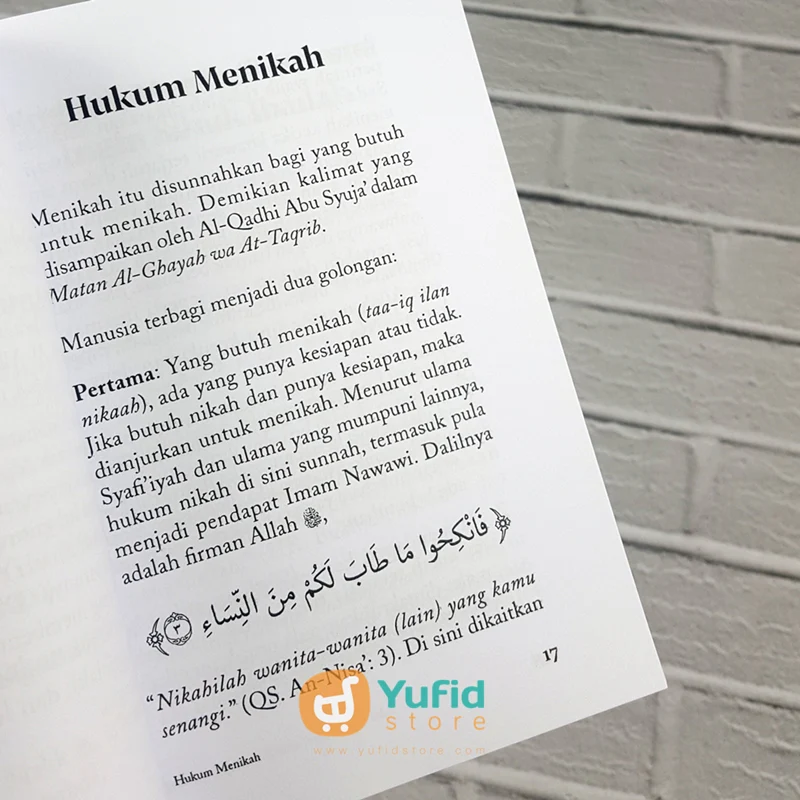 Hukum Menikah
Menikah itu disunnahkan bagi yang butuh
untuk menikah. Demikian kalimat yang
disampaikan oleh Al-Qadhi Abu Syuja' dalam
Matan Al-Ghayah wa At-Taqrib.
Manusia terbagi menjadi dua golongan:
Pertama: Yang butuh menikah (taa-iq ilan
nikaah), ada yang punya kesiapan atau tidak.
Jika butuh nikah dan punya kesiapan, maka
dianjurkan untuk menikah. Menurut ulama
Syafi'iyah dan ulama yang mumpuni lainnya,
hukum nikah di sini sunnah, termasuk pula
menjadi pendapat Imam Nawawi. Dalilnya
adalah firman Allah ﷻ,
﴿ فَانْكِحُوا مَا طَابَ لَكُمْ مِنَ النِّسَاءِ ٣ ﴾
“Nikahilah wanita-wanita (lain) yang kamu
senangi.” (QS. An-Nisa': 3). Di sini dikaitkan
17
Hukum Menikah
Yufid
store
www.yufidstore.com